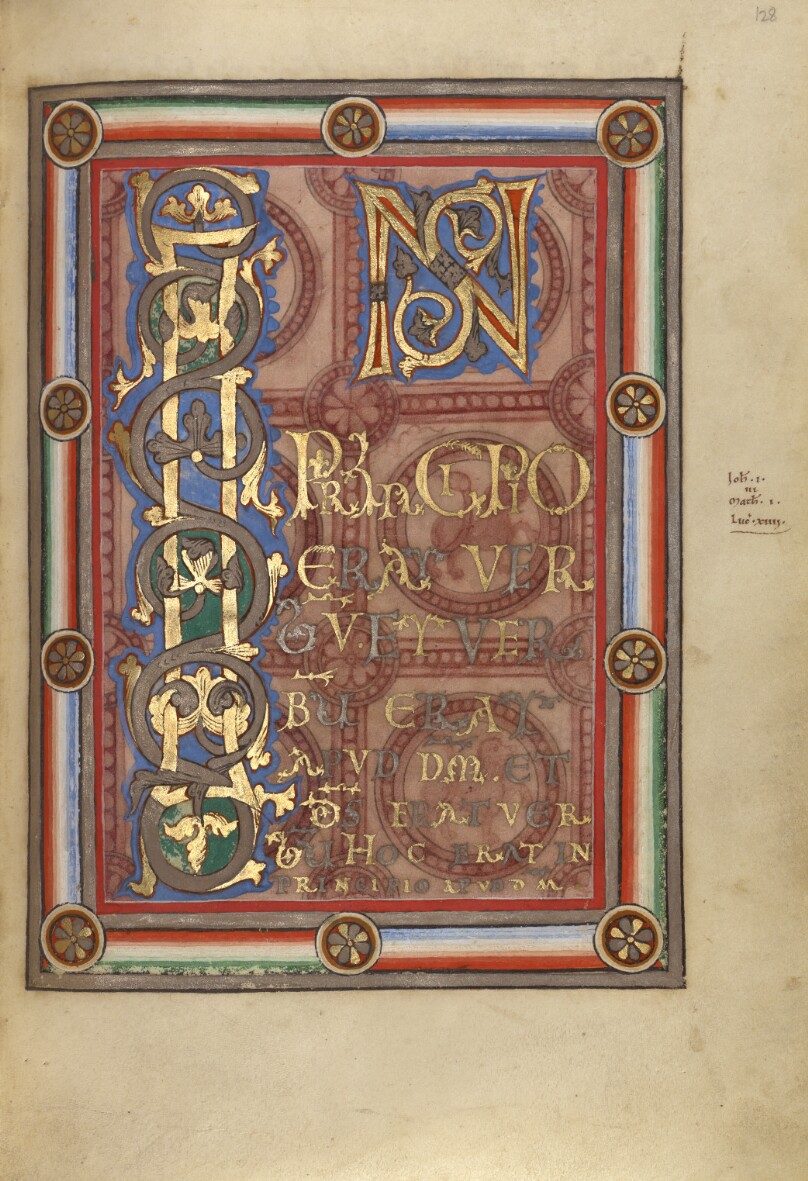 128
IN
PRINCIPIO
ERAT VER
BV. ET VER
BU ERAT
APVD DM. ET
DS ERAT VER
BU HOC ERAT IN
PRINCIPIO APVD DM
Ioh. .I.
III
Math. .I.
Luc .XIIII.